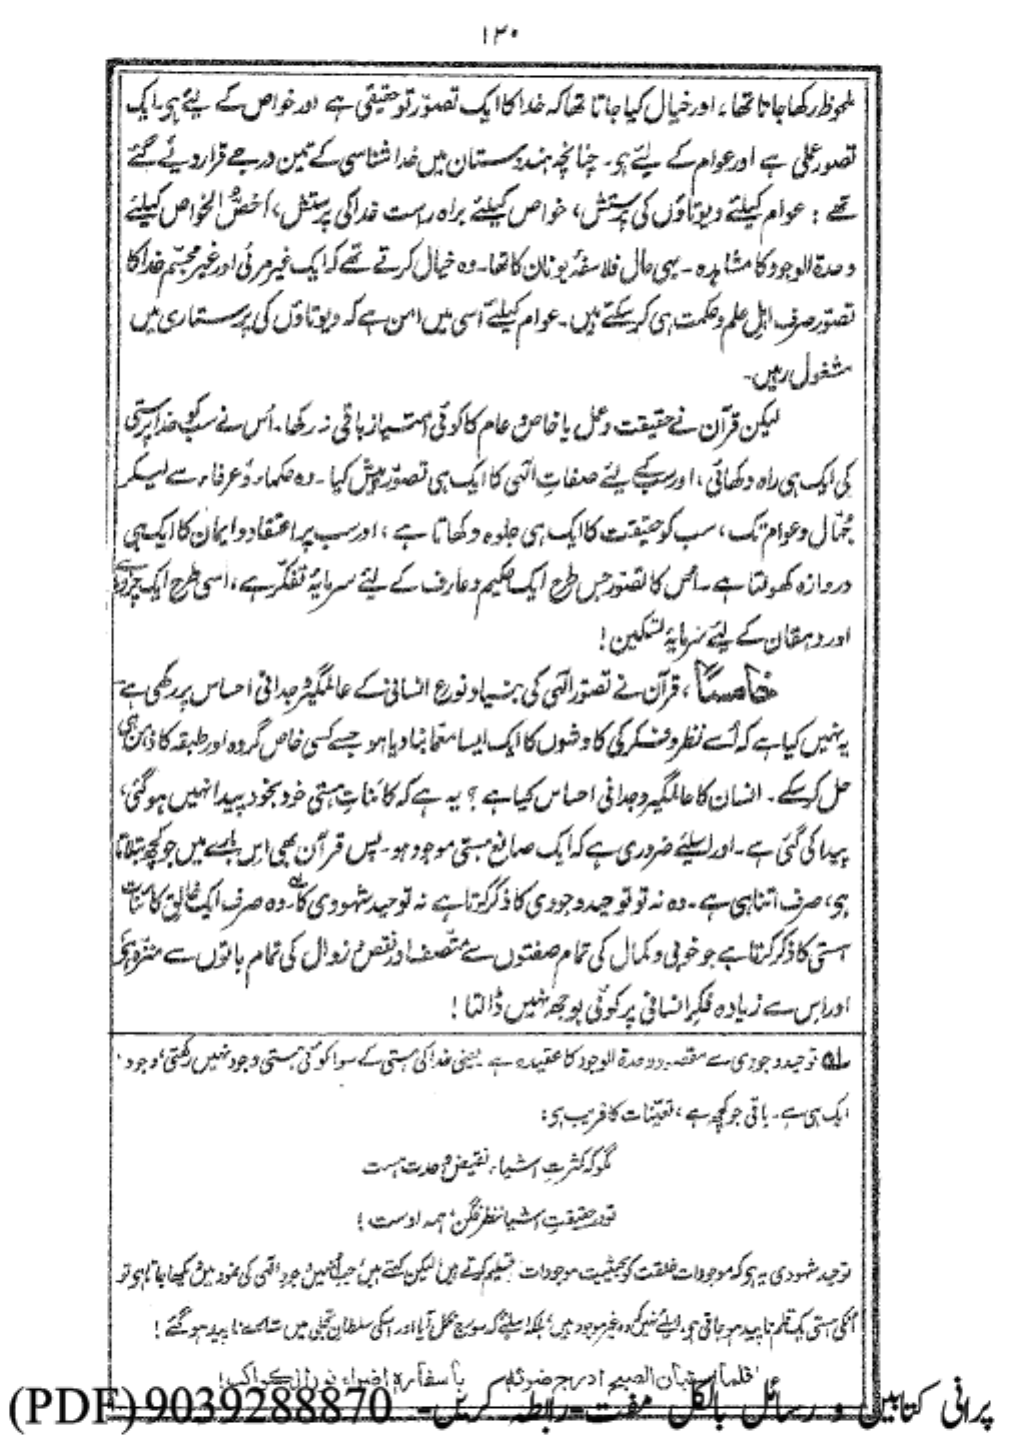 ۱۳۰
ملحوظ رکھا جاتا تھا، اور خیال کیا جاتا تھا کہ خدا کا ایک تصوّر تو حقیقی ہے اور خواص کے لیئے ہی، ایک
تصور عملی ہے اور عوام کے لیئے ہو۔ چنانچہ ہندوستان میں خدا شناسی کے تین درجے قرار دیئے گئے
تھے : عوام کیلئے دیوتاؤں کی پرستش، خواص کیلئے براہ راست خدا کی پرستش، اَخصُّ الخواص کیلئے
وحدۃ الوجود کا مشاہدہ۔ یہی حال فلاسفۂ یونان کا تھا۔ وہ خیال کرتے تھے کہ ایک غیر مرئی اور غیر مجسّم خدا کا
تصوّر صرف اہل علم و حکمت ہی کر سکتے ہیں۔ عوام کیلئے اسی میں امن ہے کہ دیوتاؤں کی پرستاری میں
مشغول رہیں۔
لیکن قرآن نے حقیقت و عمل یا خاص و عام کا کوئی امتیاز باقی نہ رکھا۔ اُس نے سب کو خدا پرستی
کی ایک ہی راہ دکھائی، اور سب کے لیئے صفاتِ الٰہی کا ایک ہی تصوّر پیش کیا۔ وہ حکماء و عرفاء سے لیکر
جُہّال و عوام تک، سب کو حقیقت کا ایک ہی جلوہ دکھاتا ہے، اور سب پر اعتقاد و ایمان کا ایک ہی
دروازہ کھولتا ہے۔ اس کا تصوّر جس طرح ایک حکیم و عارف کے لیئے سرمایۂ تفکّر ہے، اسی طرح ایک چرواہے
اور دہقان کے لیئے سرمایۂ تسکین!
خامساً، قرآن نے تصوّرِ الٰہی کی بنیاد نوع انسانی کے عالمگیر وجدانی احساس پر رکھی ہے
یہ نہیں کیا ہے کہ اُسے نظر و فکر کی کاوشوں کا ایک ایسا معمّا بنا دیا ہو جسے کسی خاص گروہ اور طبقہ کا ذہن ہی
حل کر سکے۔ انسان کا عالمگیر وجدانی احساس کیا ہے؟ یہ ہے کہ کائناتِ ہستی خود بخود پیدا نہیں ہو گئی،
پیدا کی گئی ہے۔ اور اسلیئے ضروری ہے کہ ایک صانع ہستی موجود ہو۔ پس قرآن بھی اس بارے میں جو کچھ بتلاتا
ہی، صرف اتنا ہی ہے۔ وہ نہ تو توحیدِ وجودی کا ذکر کرتا ہے نہ توحیدِ شہودی کا۔ وہ صرف ایک خالقِ کائنات
ہستی کا ذکر کرتا ہے جو خوبی و کمال کی تمام صفتوں سے متّصف اور نقص و زوال کی تمام باتوں سے منزّہ ہی
اور اس سے زیادہ فکرِ انسانی پر کوئی بوجھ نہیں ڈالتا!
لہ توحید وجودی سے مقصود وحدۃ الوجود کا عقیدہ ہے۔ یعنی خدا کی ہستی کے سوا کوئی ہستی وجود نہیں رکھتی، وجود
ایک ہی ہے۔ باقی جو کچھ ہے، تعیّنات کا فریب ہی:
مگو کہ کثرتِ اشیاء نقیضِ وحدت ہست
تو در حقیقتِ اشیا نظر فگن ہمہ اوست!
توحید شہودی یہ ہی کہ موجودات خلقت کو بحیثیت موجودات تسلیم کرتے ہیں لیکن کہتے ہیں جب اُنہیں وجود الٰہی کی نمود میں دیکھا جاتا ہی تو
اُنکی ہستی یک قلم ناپید ہو جاتی ہی، اسلئے نہیں کہ وہ غیر موجود ہیں بلکہ اسلئے کہ سورج نکل آیا اور اسکی سلطان تجلی میں ستارے ناپید ہو گئے!
فلما استبان الصبح ادرج ضوئہ باسفارہ اضواء نور الکواکب!
پرانی کتابیں و رسائل بالکل مفت-رابطہ کریں- 9039288870 (PDF)